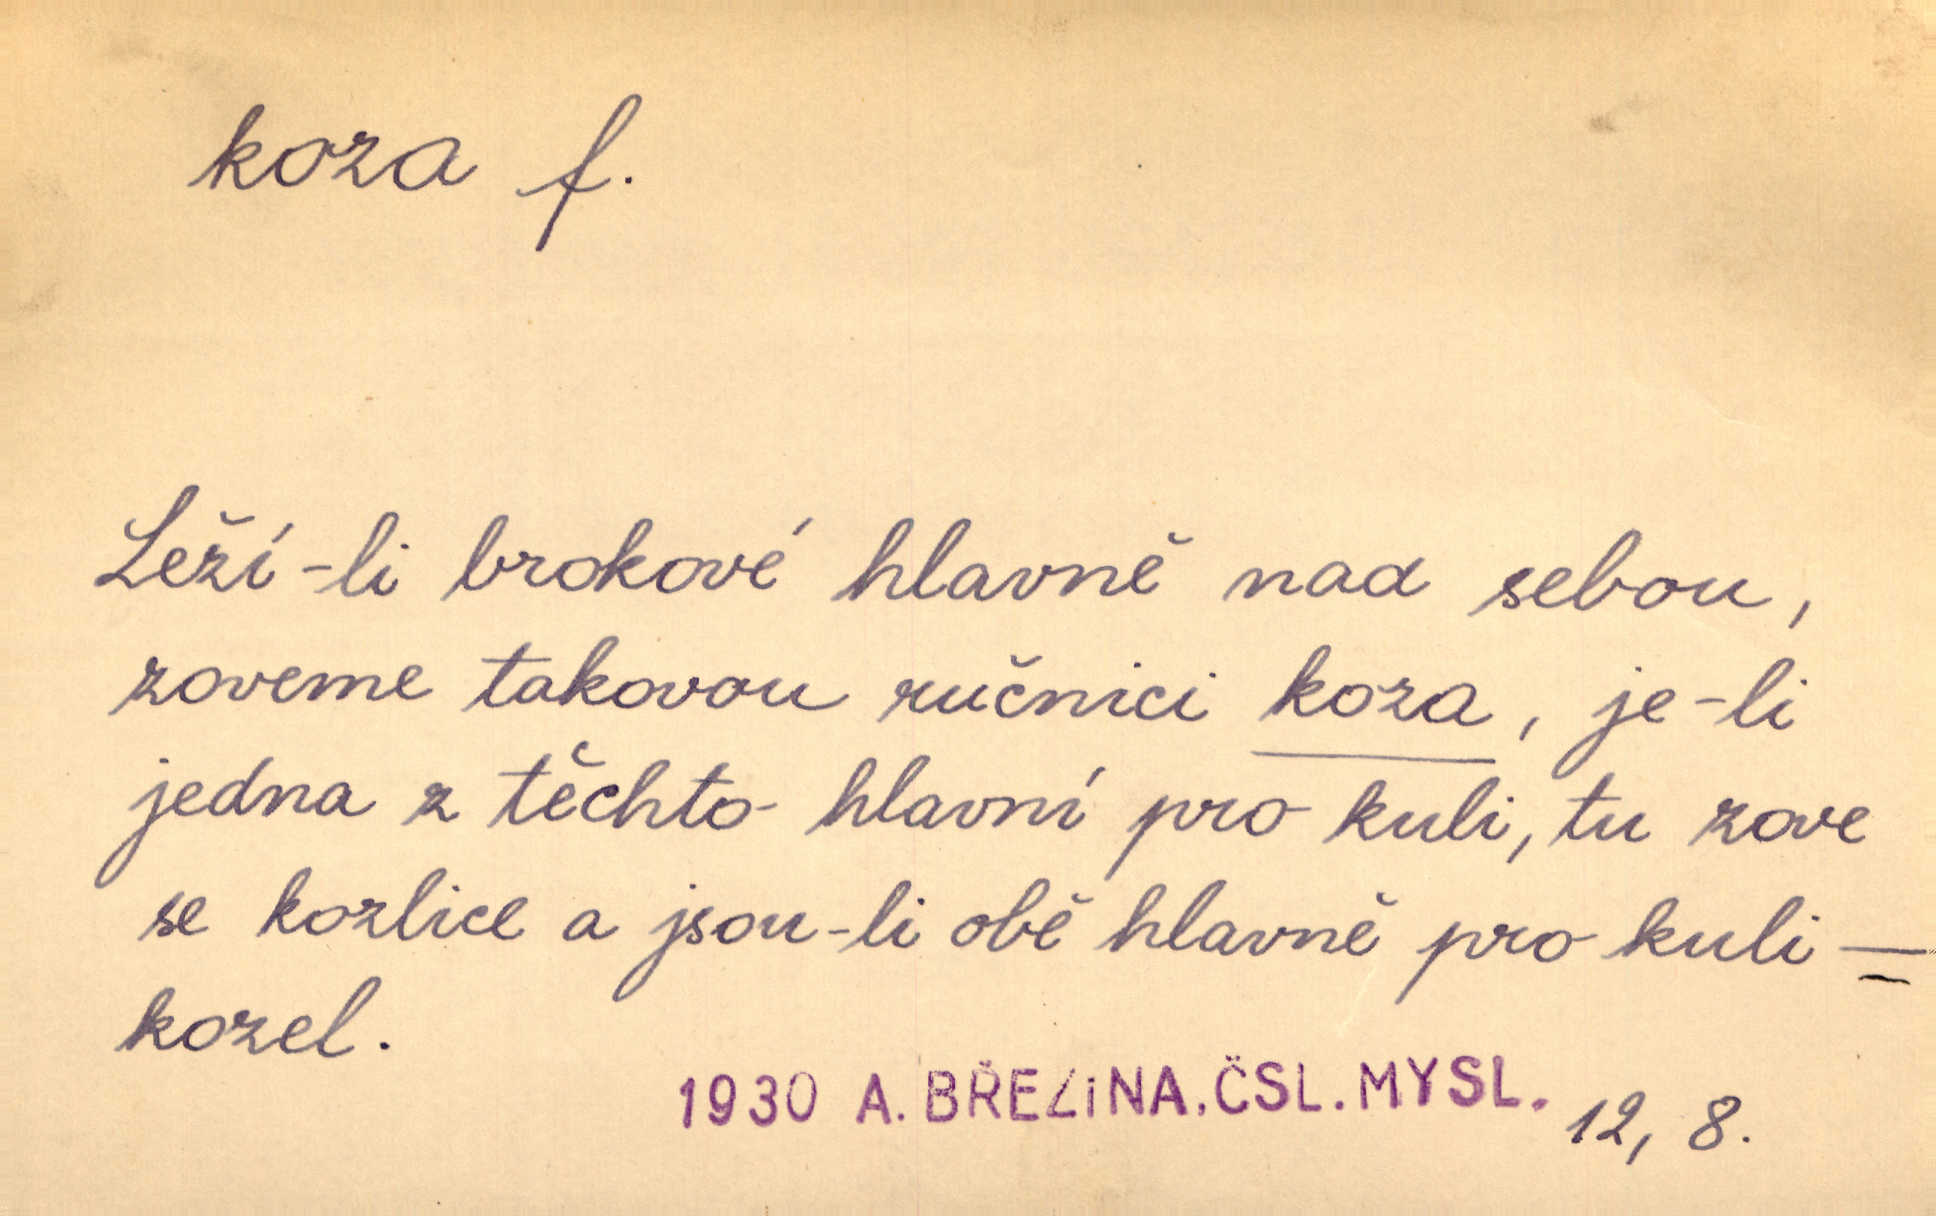 koza f.
Leží-li brokové hlavně nad sebou,
zoveme takovou ručnici koza, je-li
jedna z těchto hlavní pro kuli, tu zove
se kozlice a jsou-li obě hlavně pro kuli —
kozel.
1930 A. BŘEZINA. ČSL. MYSL. 12, 8.